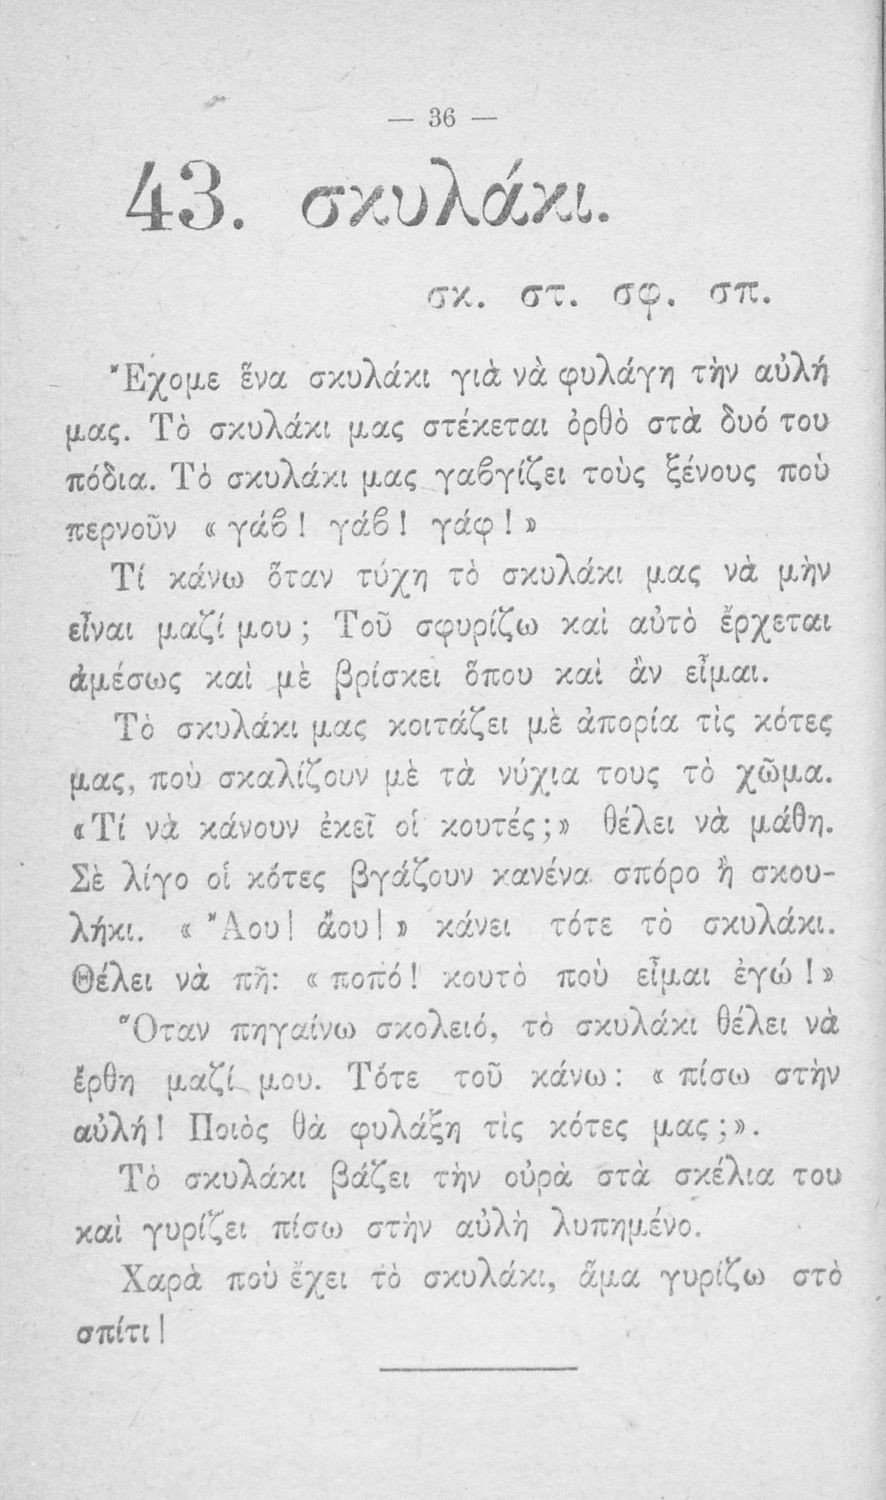 — 36 —
43. σκυλάκι.
σκ. στ. σφ. σπ.
Ἔχομε ἕνα σκυλάκι γιὰ νὰ φυλάγη τὴν αὐλή
μας. Τὸ σκυλάκι μας στέκεται ὀρθὸ στὰ δυό του
πόδια. Τὸ σκυλάκι μας γαβγίζει τοὺς ξένους ποὺ
περνοῦν « γάβ ! γάβ ! γάφ ! »
Τί κάνω ὅταν τύχη τὸ σκυλάκι μας νὰ μὴν
εἶναι μαζί μου ; Τοῦ σφυρίζω καὶ αὐτὸ ἔρχεται
ἀμέσως καὶ μὲ βρίσκει ὅπου καὶ ἂν εἶμαι.
Τὸ σκυλάκι μας κοιτάζει μὲ ἀπορία τὶς κότες
μας, ποὺ σκαλίζουν μὲ τὰ νύχια τους τὸ χῶμα.
«Τί νὰ κάνουν ἐκεῖ οἱ κουτές;» θέλει νὰ μάθη.
Σὲ λίγο οἱ κότες βγάζουν κανένα σπόρο ἢ σκου-
λήκι. « Ἄου! ἄου! » κάνει τότε τὸ σκυλάκι.
Θέλει νὰ πῆ: « ποπό! κουτὸ ποὺ εἶμαι ἐγώ !»
Ὅταν πηγαίνω σκολειό, τὸ σκυλάκι θέλει νὰ
ἔρθη μαζί μου. Τότε τοῦ κάνω: « πίσω στὴν
αὐλή! Ποιὸς θὰ φυλάξη τὶς κότες μας ;».
Τὸ σκυλάκι βάζει τὴν οὐρὰ στὰ σκέλια του
καὶ γυρίζει πίσω στὴν αὐλὴ λυπημένο.
Χαρὰ ποὺ ἔχει τὸ σκυλάκι, ἅμα γυρίζω στὸ
σπίτι !